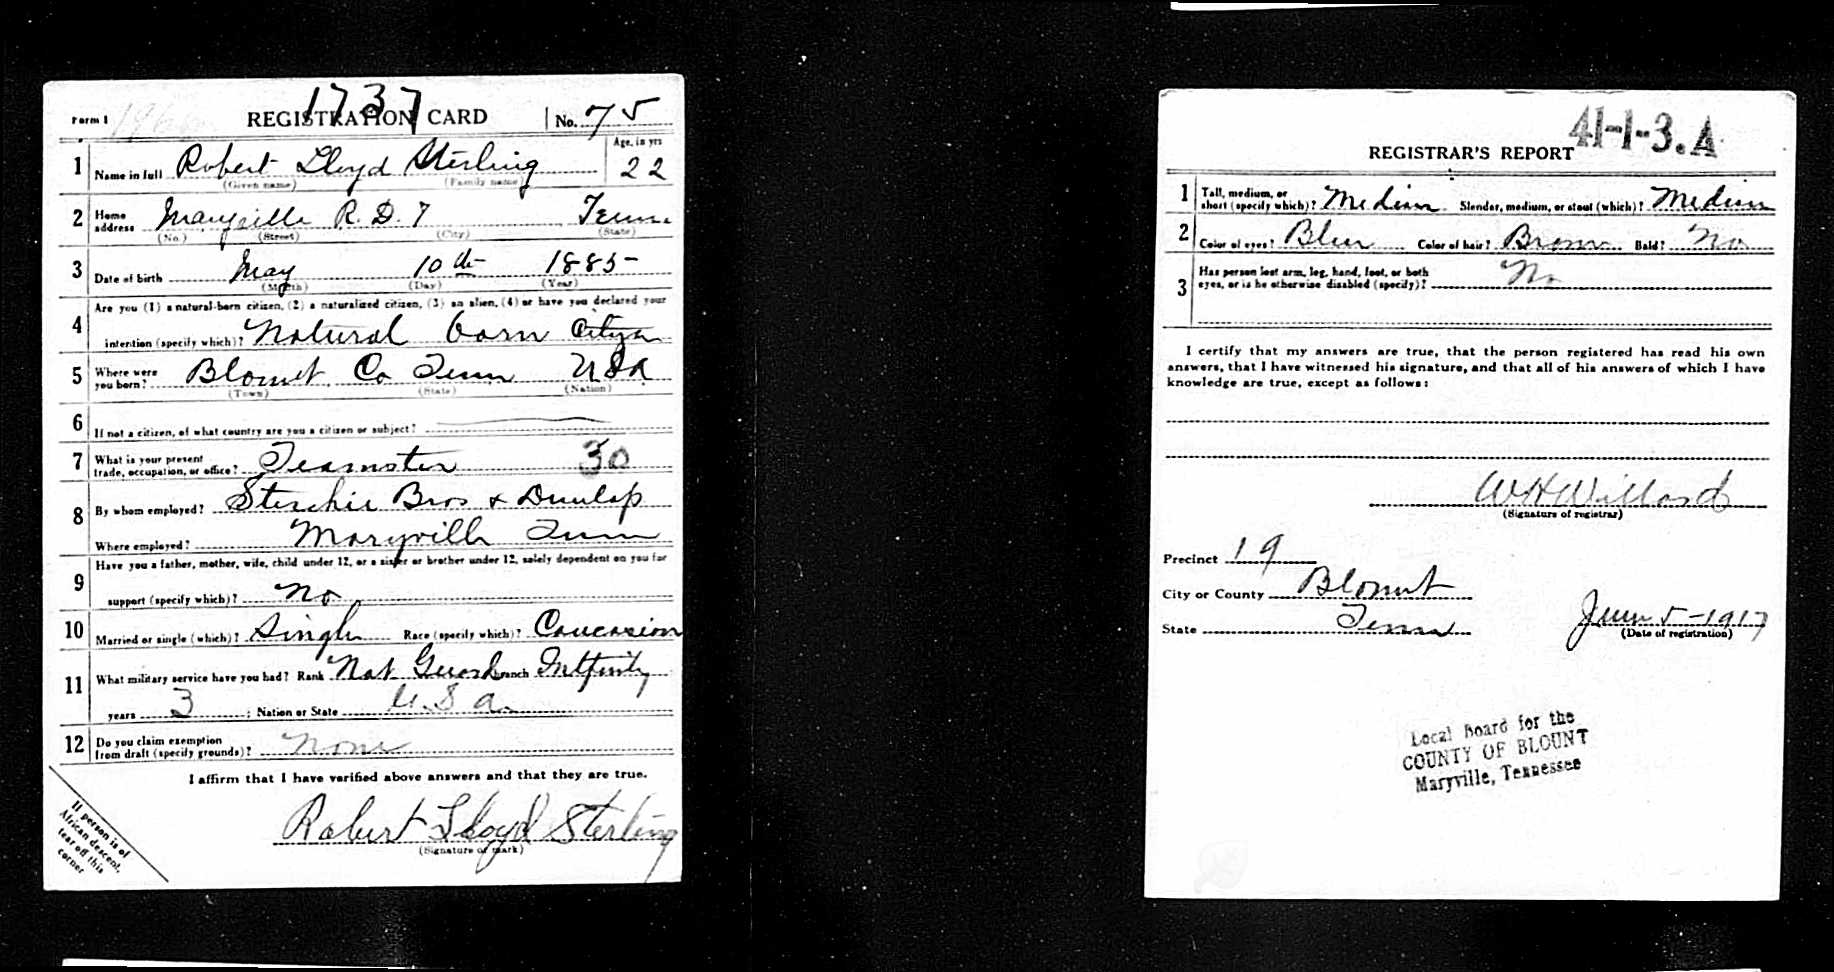 1737
Form 1 REGISTRATION CARD No. 75
Age, in yrs
1 Name in full Robert Lloyd Sterling 22
(Given name) (Family name)
2 Home address Maryville R. D. 7 Tenn.
(No.) (Street) (City) (State)
3 Date of birth May 10th 1885
(Month) (Day) (Year)
Are you (1) a natural-born citizen, (2) a naturalized citizen, (3) an alien, (4) or have you declared your
4 intention (specify which)? Natural born Citizen
5 Where were you born? Blount Co Tenn USA
(Town) (State) (Nation)
6 If not a citizen, of what country are you a citizen or subject?
7 What is your present trade, occupation, or office? Teamster 30
8 By whom employed? Sterchie Bros & Dunlap
Where employed? Maryville Tenn
9 Have you a father, mother, wife, child under 12, or a sister or brother under 12, solely dependent on you for
support (specify which)? No
10 Married or single (which)? Single Race (specify which)? Caucasion
11 What military service have you had? Rank Nat Guard Branch
years 3 ; Nation or State U.S.a.
12 Do you claim exemption from draft (specify grounds)? None
I affirm that I have verified above answers and that they are true.
Robert Lloyd Sterling
(Signature or mark)
If person is of
African descent,
tear off this
corner
41-1-3.A
REGISTRAR'S REPORT
1 Tall, medium, or short (specify which)? Medium Slender, medium, or stout (which)? Medium
2 Color of eyes? Blue Color of hair? Brown Bald? No
3 Has person lost arm, leg, hand, foot, or both
eyes, or is he otherwise disabled (specify)? No
I certify that my answers are true, that the person registered has read his own
answers, that I have witnessed his signature, and that all of his answers of which I have
knowledge are true, except as follows:
W H Willard
(Signature of registrar)
Precinct 19
City or County Blount
State Tenn
June 5-1917
(Date of registration)
Local Board for the
COUNTY OF BLOUNT
Maryville, Tennessee